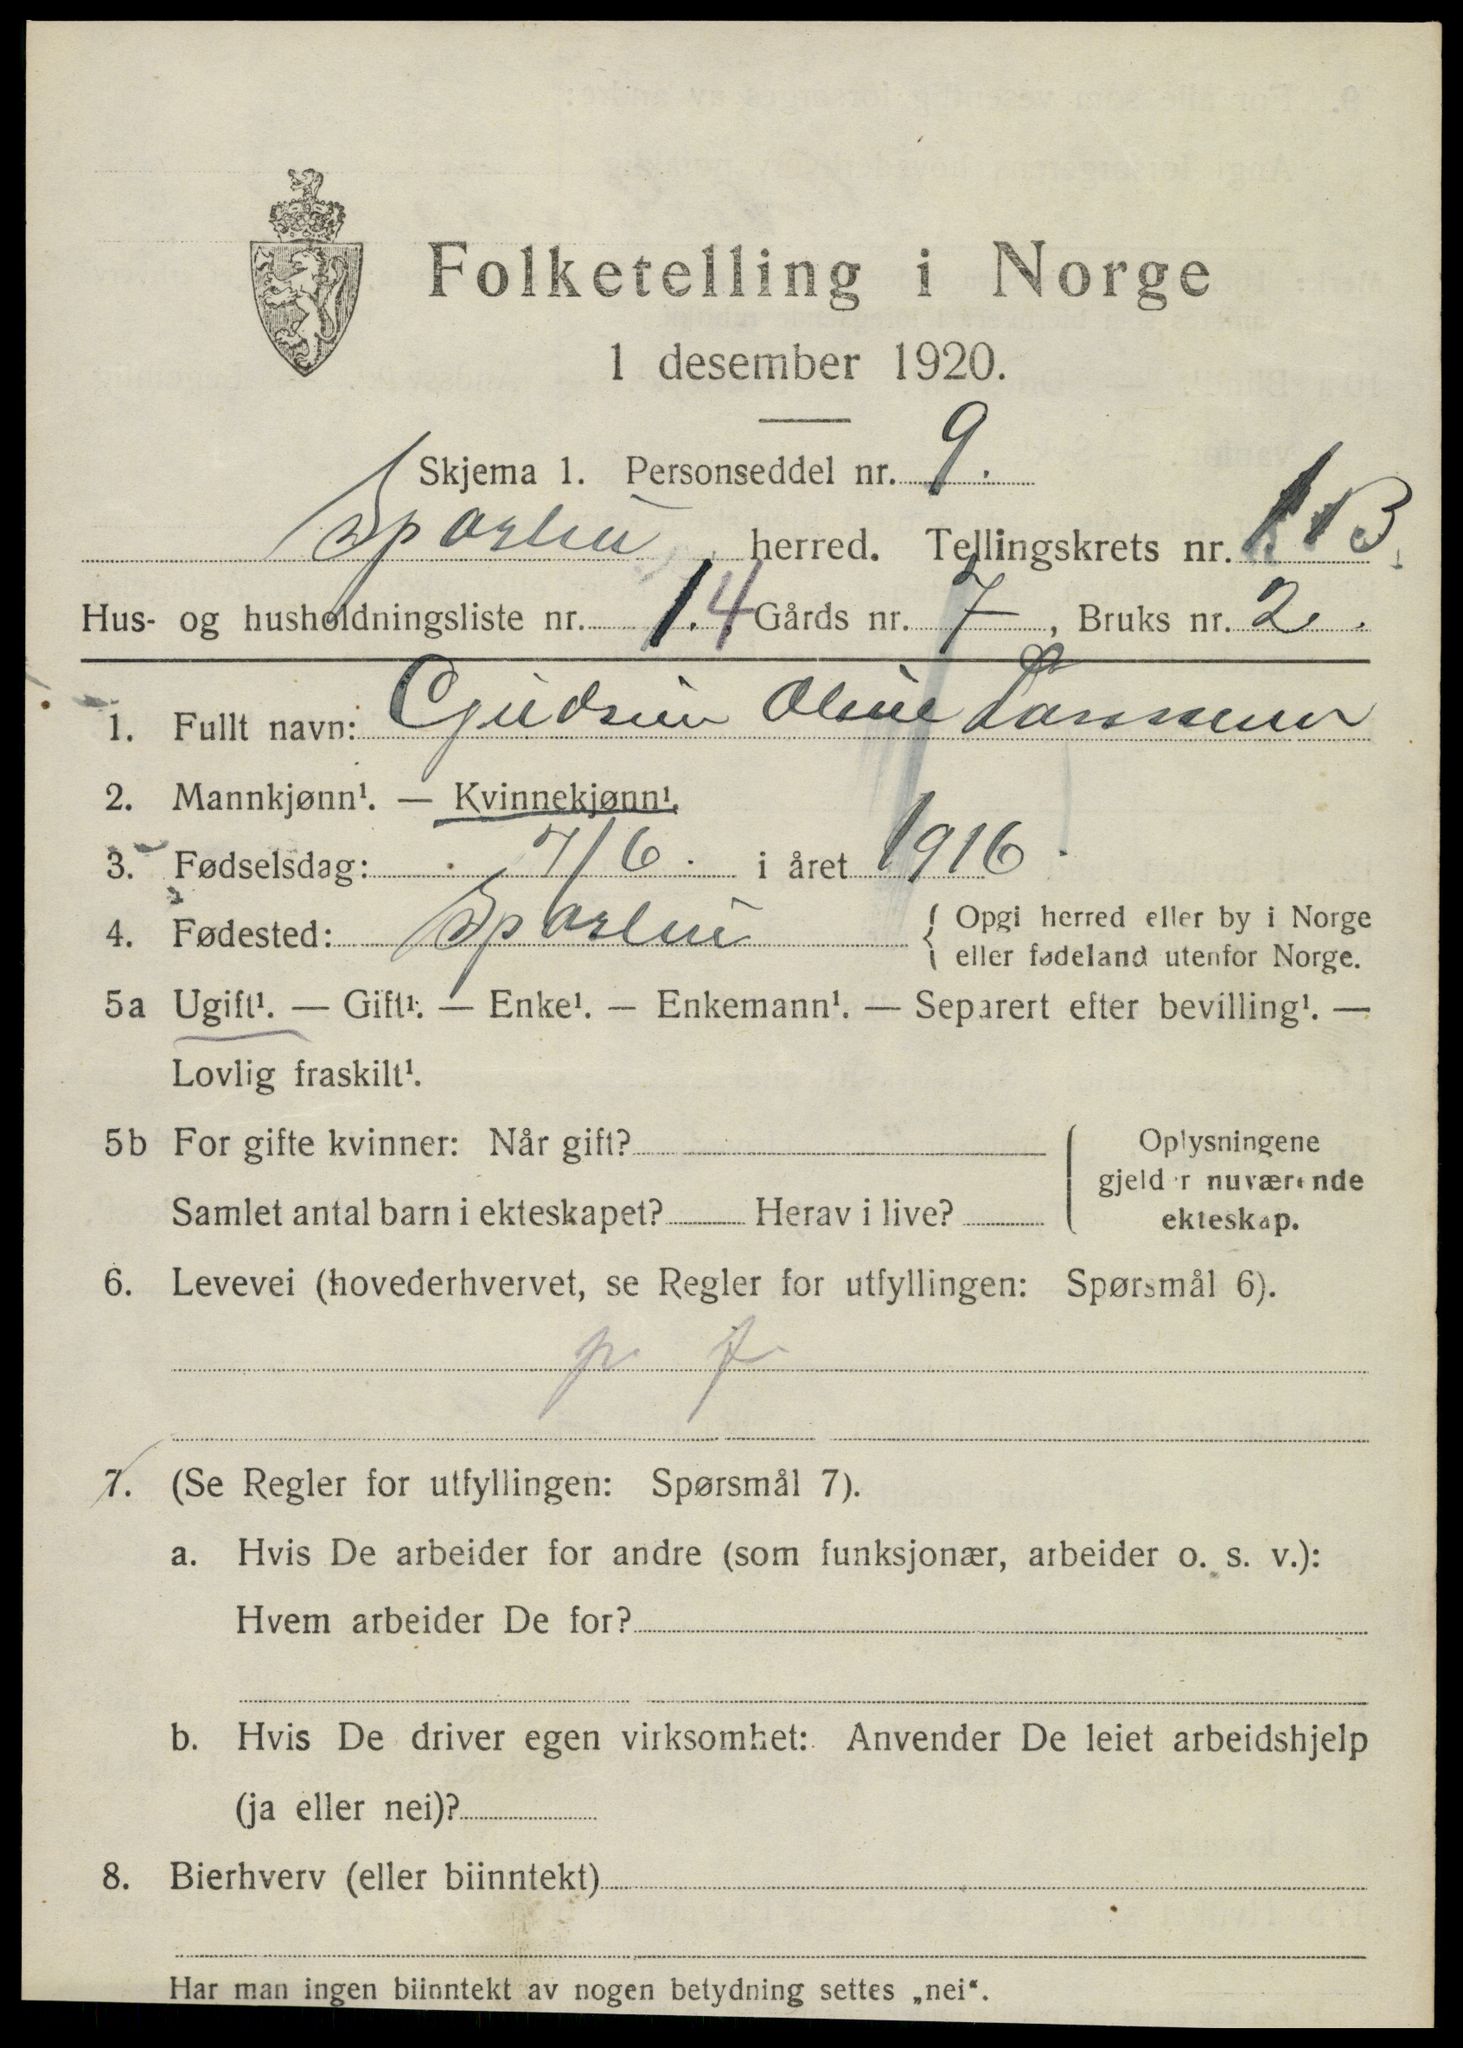 Folketelling i Norge
1 desember 1920.
Skjema 1. Personseddel nr. 9.
Sparbu herred. Tellingskrets nr. 1 B.
Hus- og husholdningsliste nr. 14 Gårds nr. 7, Bruks nr. 2.
1. Fullt navn: Oline
2. Mannkjønn¹. — Kvinnekjønn¹.
3. Fødselsdag: 7/6. i året 1916.
4. Fødested: Sparbu { Opgi herred eller by i Norge
eller fødeland utenfor Norge.
5a Ugift¹. — Gift¹. — Enke¹. — Enkemann¹. — Separert efter bevilling¹. —
Lovlig fraskilt¹.
5b For gifte kvinner: Når gift? Oplysningene
gjelder nuværende
Samlet antal barn i ekteskapet? Herav i live? ekteskap.
6. Levevei (hovederhvervet, se Regler for utfyllingen: Spørsmål 6).
p. f.
7. (Se Regler for utfyllingen: Spørsmål 7).
a. Hvis De arbeider for andre (som funksjonær, arbeider o. s. v.):
Hvem arbeider De for?
b. Hvis De driver egen virksomhet: Anvender De leiet arbeidshjelp
(ja eller nei)?
8. Bierhverv (eller biinntekt)
Har man ingen biinntekt av nogen betydning settes „nei“.